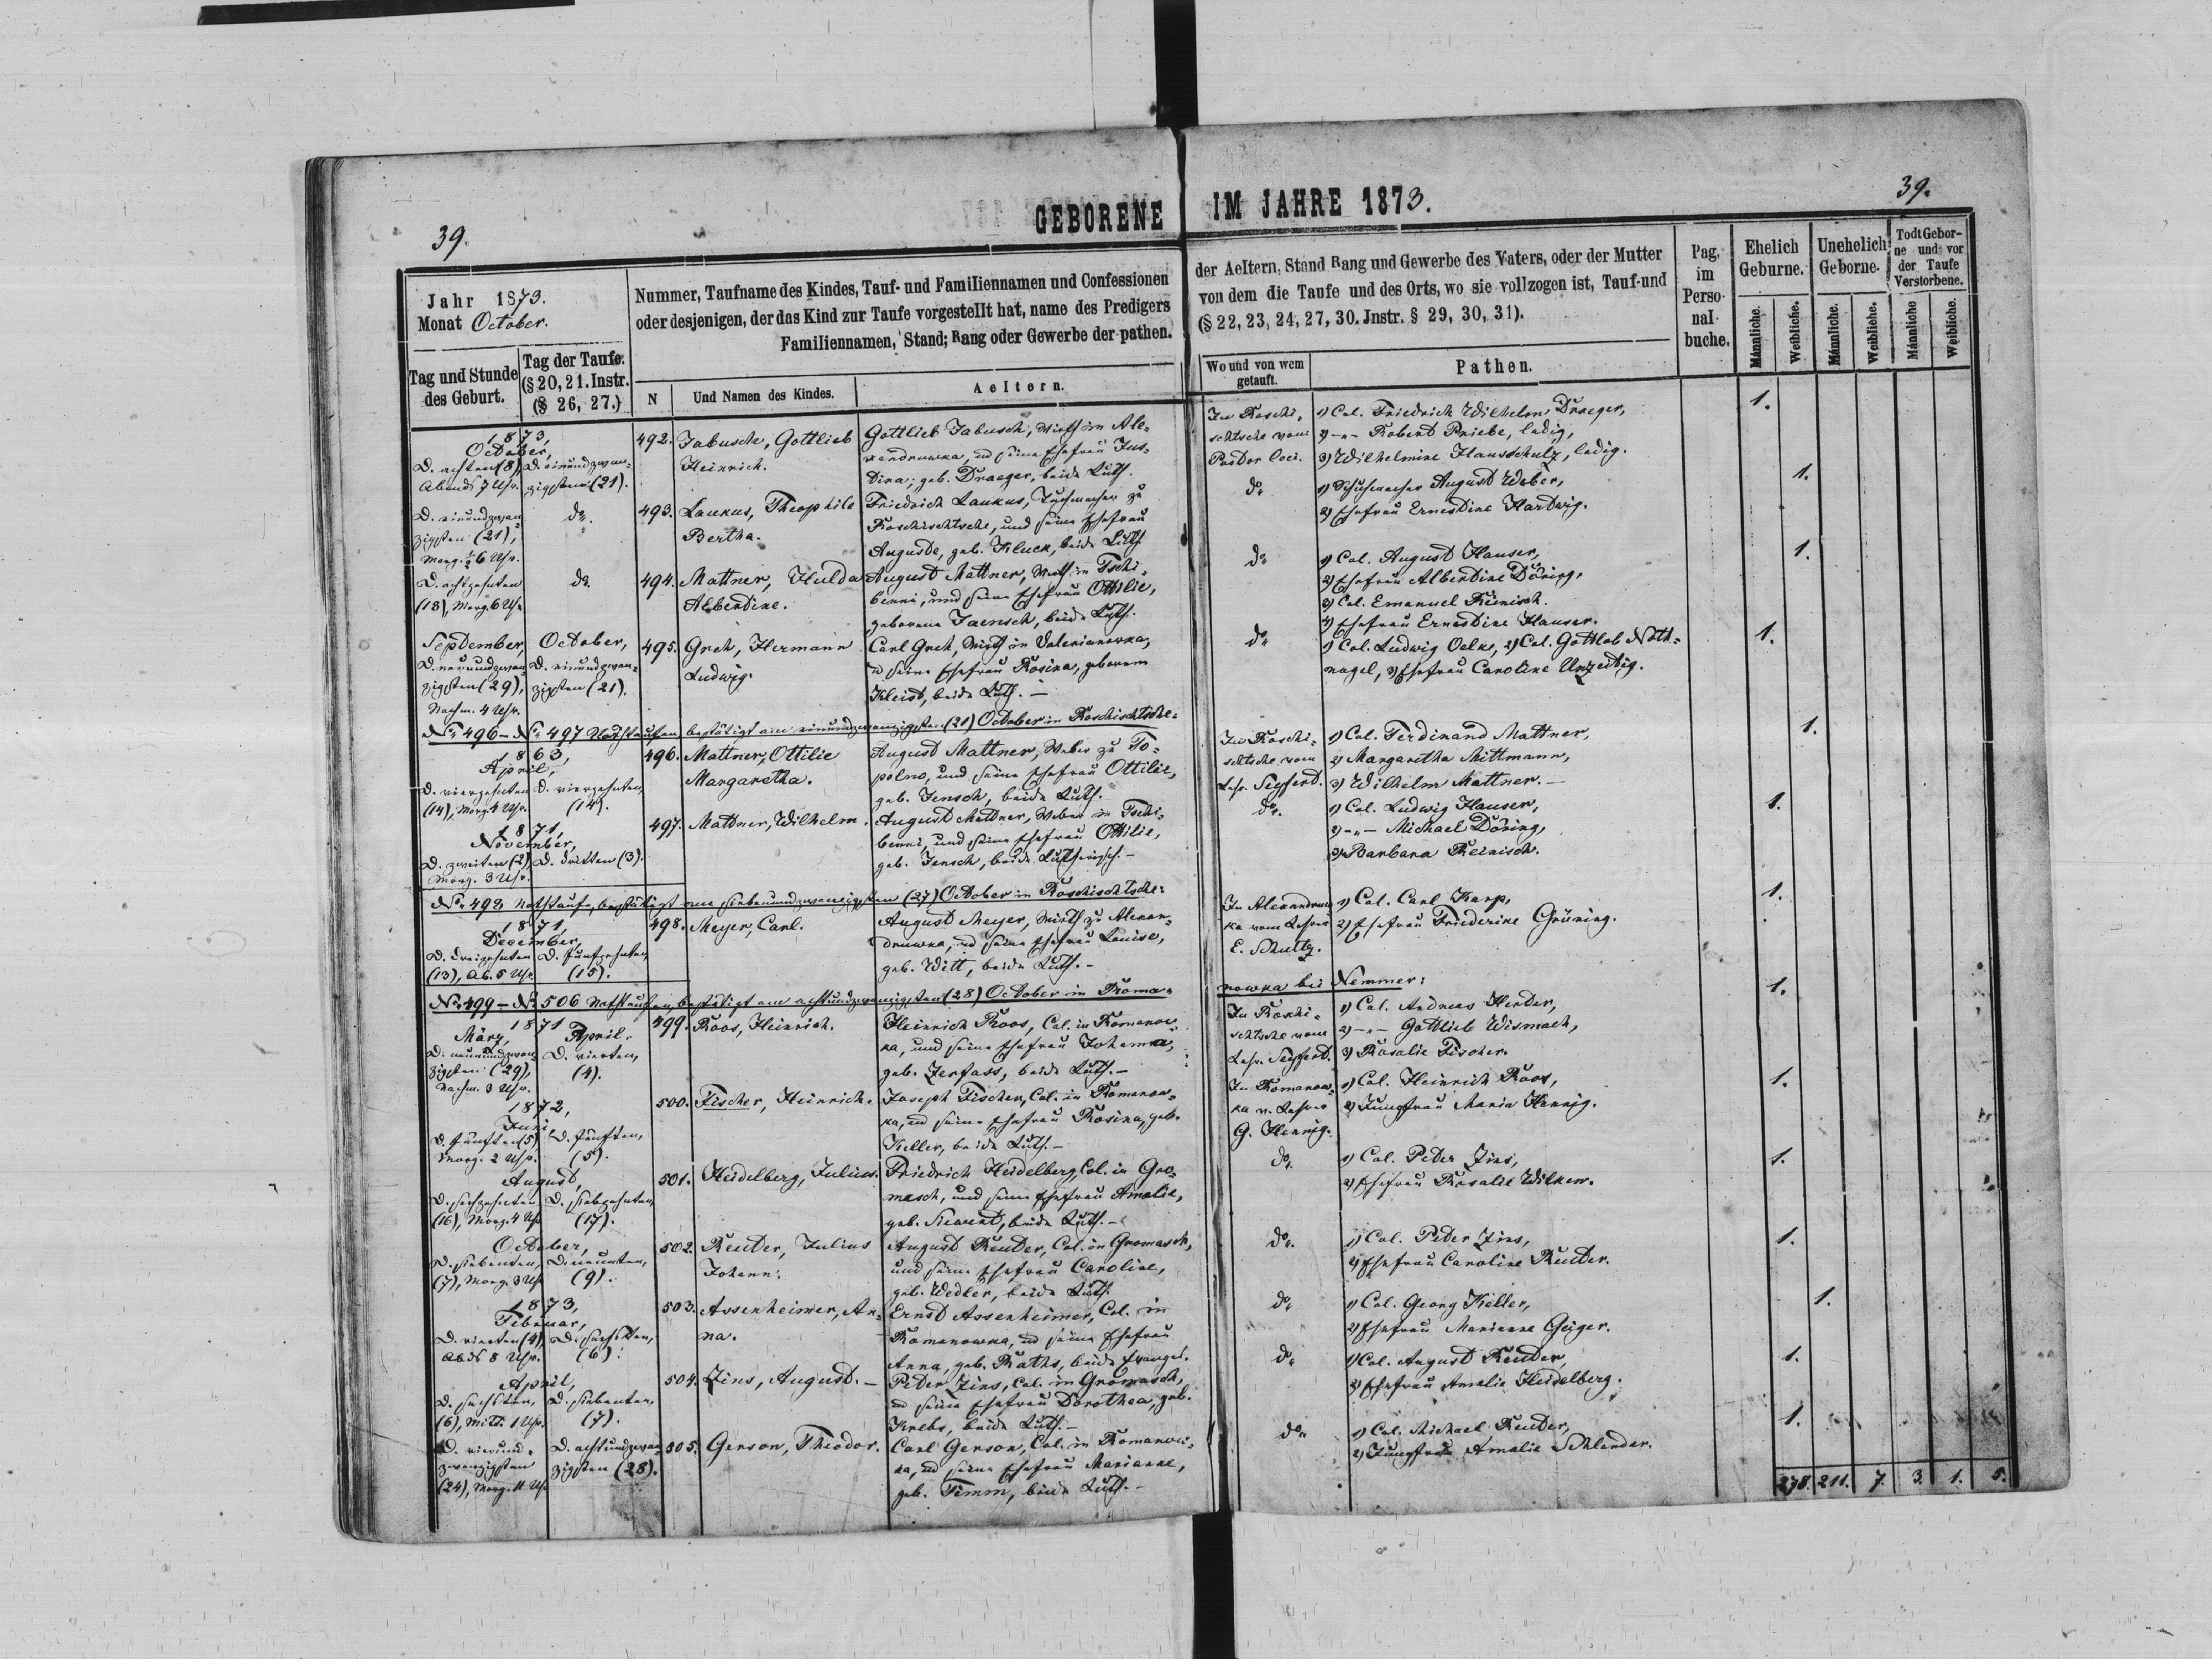 39.
GEBORENE IM JAHRE 1873.
39.
Jahr 1873.
Monat October.
Nummer, Taufname des Kindes, Tauf- und Familiennamen und Confessionen
oder desjenigen, der das Kind zur Taufe vorgestellt hat, name des Predigers
Familiennamen, Stand; Rang oder Gewerbe der pathen.
der Aeltern, Stand Rang und Gewerbe des Vaters, oder der Mutter
von dem die Taufe und des Orts, wo sie vollzogen ist, Tauf-und
(§ 22, 23, 24, 27, 30. Jnstr. § 29, 30, 31).
Pag. im Perso-nal-buche.
Ehelich Geburne.
Unehelich Geborne.
Todt Gebor-ne und vor der Taufe Verstorbene.
Männliche. Weibliche. Männliche. Weibliche. Männliche Weibliche.
Tag und Stunde des Geburt.
Tag der Taufe. (§ 20, 21. Instr. (§ 26, 27.)
N
Und Namen des Kindes.
Aeltern.
Wo und von wem getauft.
Pathen.
1873,
October,
D. achten (8), Abends 7 Uhr.
D. einundzwanzigsten (21).
492. Jabusch, Gottlieb Heinrich.
Gottlieb Jabusch, Wirth in Ale-
xandruwka, und seine Ehefrau Jus-
tina, geb. Draeger, beide Luth.
In Roschi-
schtsche vom
Pastor loci.
1) Col. Friedrich Wilhelm Draeger,
2) -"- Robert Priebe, ledig,
3) Wilhelmine Hausschulz, ledig.
1.
D. einundzwanzigsten (21), Morg. ½6 Uhr.
do.
493. Laukus, Theophile Bertha.
Friedrich Laukus, Tuchmacher zu
Roschischtsche, und seine Ehefrau
Auguste, geb. Kluck, beide Luth.
do.
1) Schuhmacher August Weber,
2) Ehefrau Ernestine Hartwig.
1.
D. achtzehnten (18), Morg. 6 Uhr
do.
494. Mattner, Hulda Albertine.
August Mattner, Wirth in Tschi-
benni, und seine Ehefrau Ottilie,
geborene Jaensch, beide Luth.
do.
1) Col. August Hauser,
2) Ehefrau Albertine Döring,
3) Col. Emanuel Reinisch.
4) Ehefrau Ernestine Hauser.
1.
September,
D. neunundzwanzigsten (29), Nachm. 4 Uhr.
October,
D. einundzwanzigsten (21).
495. Greh, Hermann Ludwig.
Carl Greh, Wirth in Valerianowka,
und seine Ehefrau Rosina, geborene
Kleist, beide Luth. —
do.
1) Col. Ludwig Oelke, 2) Col. Gottlob Noth-
nagel, 3) Ehefrau Caroline Unzeitig.
1.
No. 496 - No. 497 Nothtaufen, bestätigt am einundzwanzigsten (21) October in Roschischtsche:
1863,
April,
D. vierzehnten (14), Morg. 4 Uhr.
D. vierzehnten, (14).
496. Mattner, Ottilie Margaretha.
August Mattner, Weber zu To-
polno, und seine Ehefrau Ottilie,
geb. Jensch, beide Luth.
In Roschi-
schtsche vom
Lehr. Seyferd.
1) Col. Ferdinand Mattner,
2) Margaretha Mittmann,
3) Wilhelm Mattner. —
1.
1871,
November,
D. zweiten (2), Morg. 3 Uhr.
D. dritten (3).
497. Mattner, Wilhelm.
August Mattner, Weber in Tschi-
benni, und seine Ehefrau Ottilie,
geb. Jensch, beide Lutherisch. —
do.
1) Col. Ludwig Hauser,
2) -"- Michael Döring,
3) Barbara Reinisch.
1.
No. 498 Nothtaufe, bestätigt am siebenundzwanzigsten (27) October in Roschischtsche:
1871,
December,
D. dreizehnten (13), Ab. 5 Uhr.
D. fünfzehnten, (15).
498. Meyer, Carl.
August Meyer, Wirth zu Alexan-
druwka, und seine Ehefrau Louise,
geb. Witt, beide Luth. —
In Alexandruw-
ka vom Lehrer
E. Schultz.
1) Col. Carl Karp,
2) Ehefrau Friederike Grüning.
1.
No. 499 - No. 506 Nothtaufen, bestätigt am achtundzwanzigsten (28) October in Roma-
nowka bei Nemmer:
1871
März,
D. neunundzwanzigsten (29), Nachm. 3 Uhr.
April.
D. vierten, (4).
499. Roos, Heinrich.
Heinrich Roos, Col. in Romanow-
ka, und seine Ehefrau Johanna,
geb. Zerfass, beide Luth. —
In Roschi-
schtsche vom
Lehr. Seyferd.
1) Col. Andreas Herter,
2) -"- Gottlieb Wismach,
3) Rosalie Fischer.
1.
1872,
Juni,
D. fünften (5) Morg. 2 Uhr.
D. fünften, (5).
500. Fischer, Heinrich.
Joseph Fischer, Col. in Romanow-
ka, und seine Ehefrau Rosina, geb.
Keller, beide Luth. —
In Romanow-
ka v. Lehrer
G. Hennig.
1) Col. Heinrich Roos,
2) Jungfrau Maria Hennig.
1.
August,
D. sechzehnten (16), Morg. 4 Uhr
D. siebzehnten, (17).
501. Heidelberg, Julius.
Friedrich Heidelberg, Col. in Gro-
masch, und seine Ehefrau Amalie,
geb. Siewert, beide Luth. —
do.
1) Col. Peter Zins,
2) Ehefrau Rosalie Wilken.
1.
October,
D. siebenten, (7), Morg. 3 Uhr
D. neunten, (9).
502. Reuter, Julius Johann.
August Reuter, Col. in Gromasch,
und seine Ehefrau Caroline,
geb. Wedler, beide Luth.
do.
1) Col. Peter Zins,
2) Ehefrau Caroline Reuter.
1.
1873,
Februar,
D. vierten (4), Abds 8 Uhr.
D. sechsten, (6).
503. Assenheimer, Anna.
Ernst Assenheimer, Col. in
Romanowka, und seine Ehefrau
Anna, geb. Raths, beide Evangel.
do.
1) Col. Georg Keller,
2) Ehefrau Marianne Geiger.
1.
April,
D. sechsten, (6), Mitt. 1 Uhr.
D. siebenten, (7).
504. Zins, August. —
Peter Zins, Col. in Gromasch,
und seine Ehefrau Dorothea, geb.
Krebs, beide Luth. —
do.
1) Col. August Reuter,
2) Ehefrau Amalie Heidelberg.
1.
D. vierundzwanzigsten (24), Morg. 11 Uhr
D. achtundzwanzigsten (28).
505. Gerson, Theodor.
Carl Gerson, Col. in Romanow-
ka, und seine Ehefrau Marianne,
geb. Timm, beide Luth. —
do.
1) Col. Michael Reuter,
2) Jungfrau Amalie Schlender.
1.
278. 211. 7. 3. 1. 5.